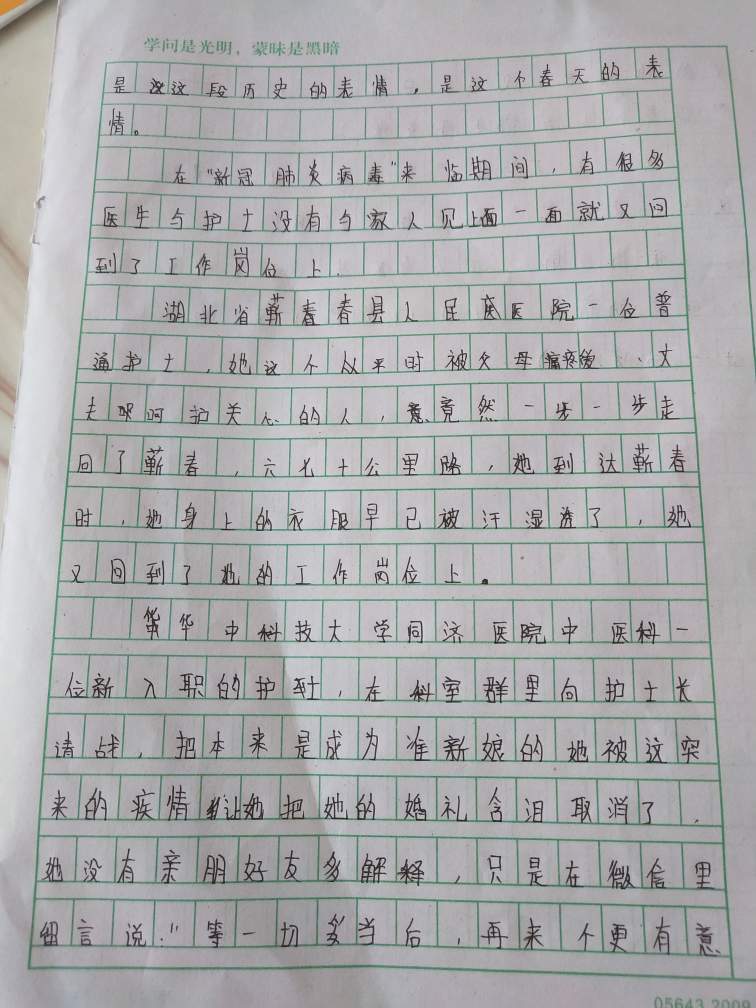 学问是光明，蒙昧是黑暗
是这段历史的表情，是这个春天的表
情。
在"新冠肺炎病毒"来临期间，有很多
医生与护士没有与家人见上面一面就又回
到了工作岗位上.
湖北省蕲春春县人民医医院一位普
通护士，她这个从平时被父母疼爱、丈
夫呵护关心的人，竟然一步一步走
回了蕲春，六七十公里路，她到达蕲春
时，她身上的衣服早已被汗湿透了，她
又回到了她的工作岗位上。
华中科技大学同济医院中医科一
位新入职的护士，在科室群里向护士长
请战，把本来是成为准新娘的她被这突
来的疾情让她把她的婚礼含泪取消了，
她没有亲朋好友多解释，只是在微信里
留言说："等一切当后，再来不更有意
05643.2009